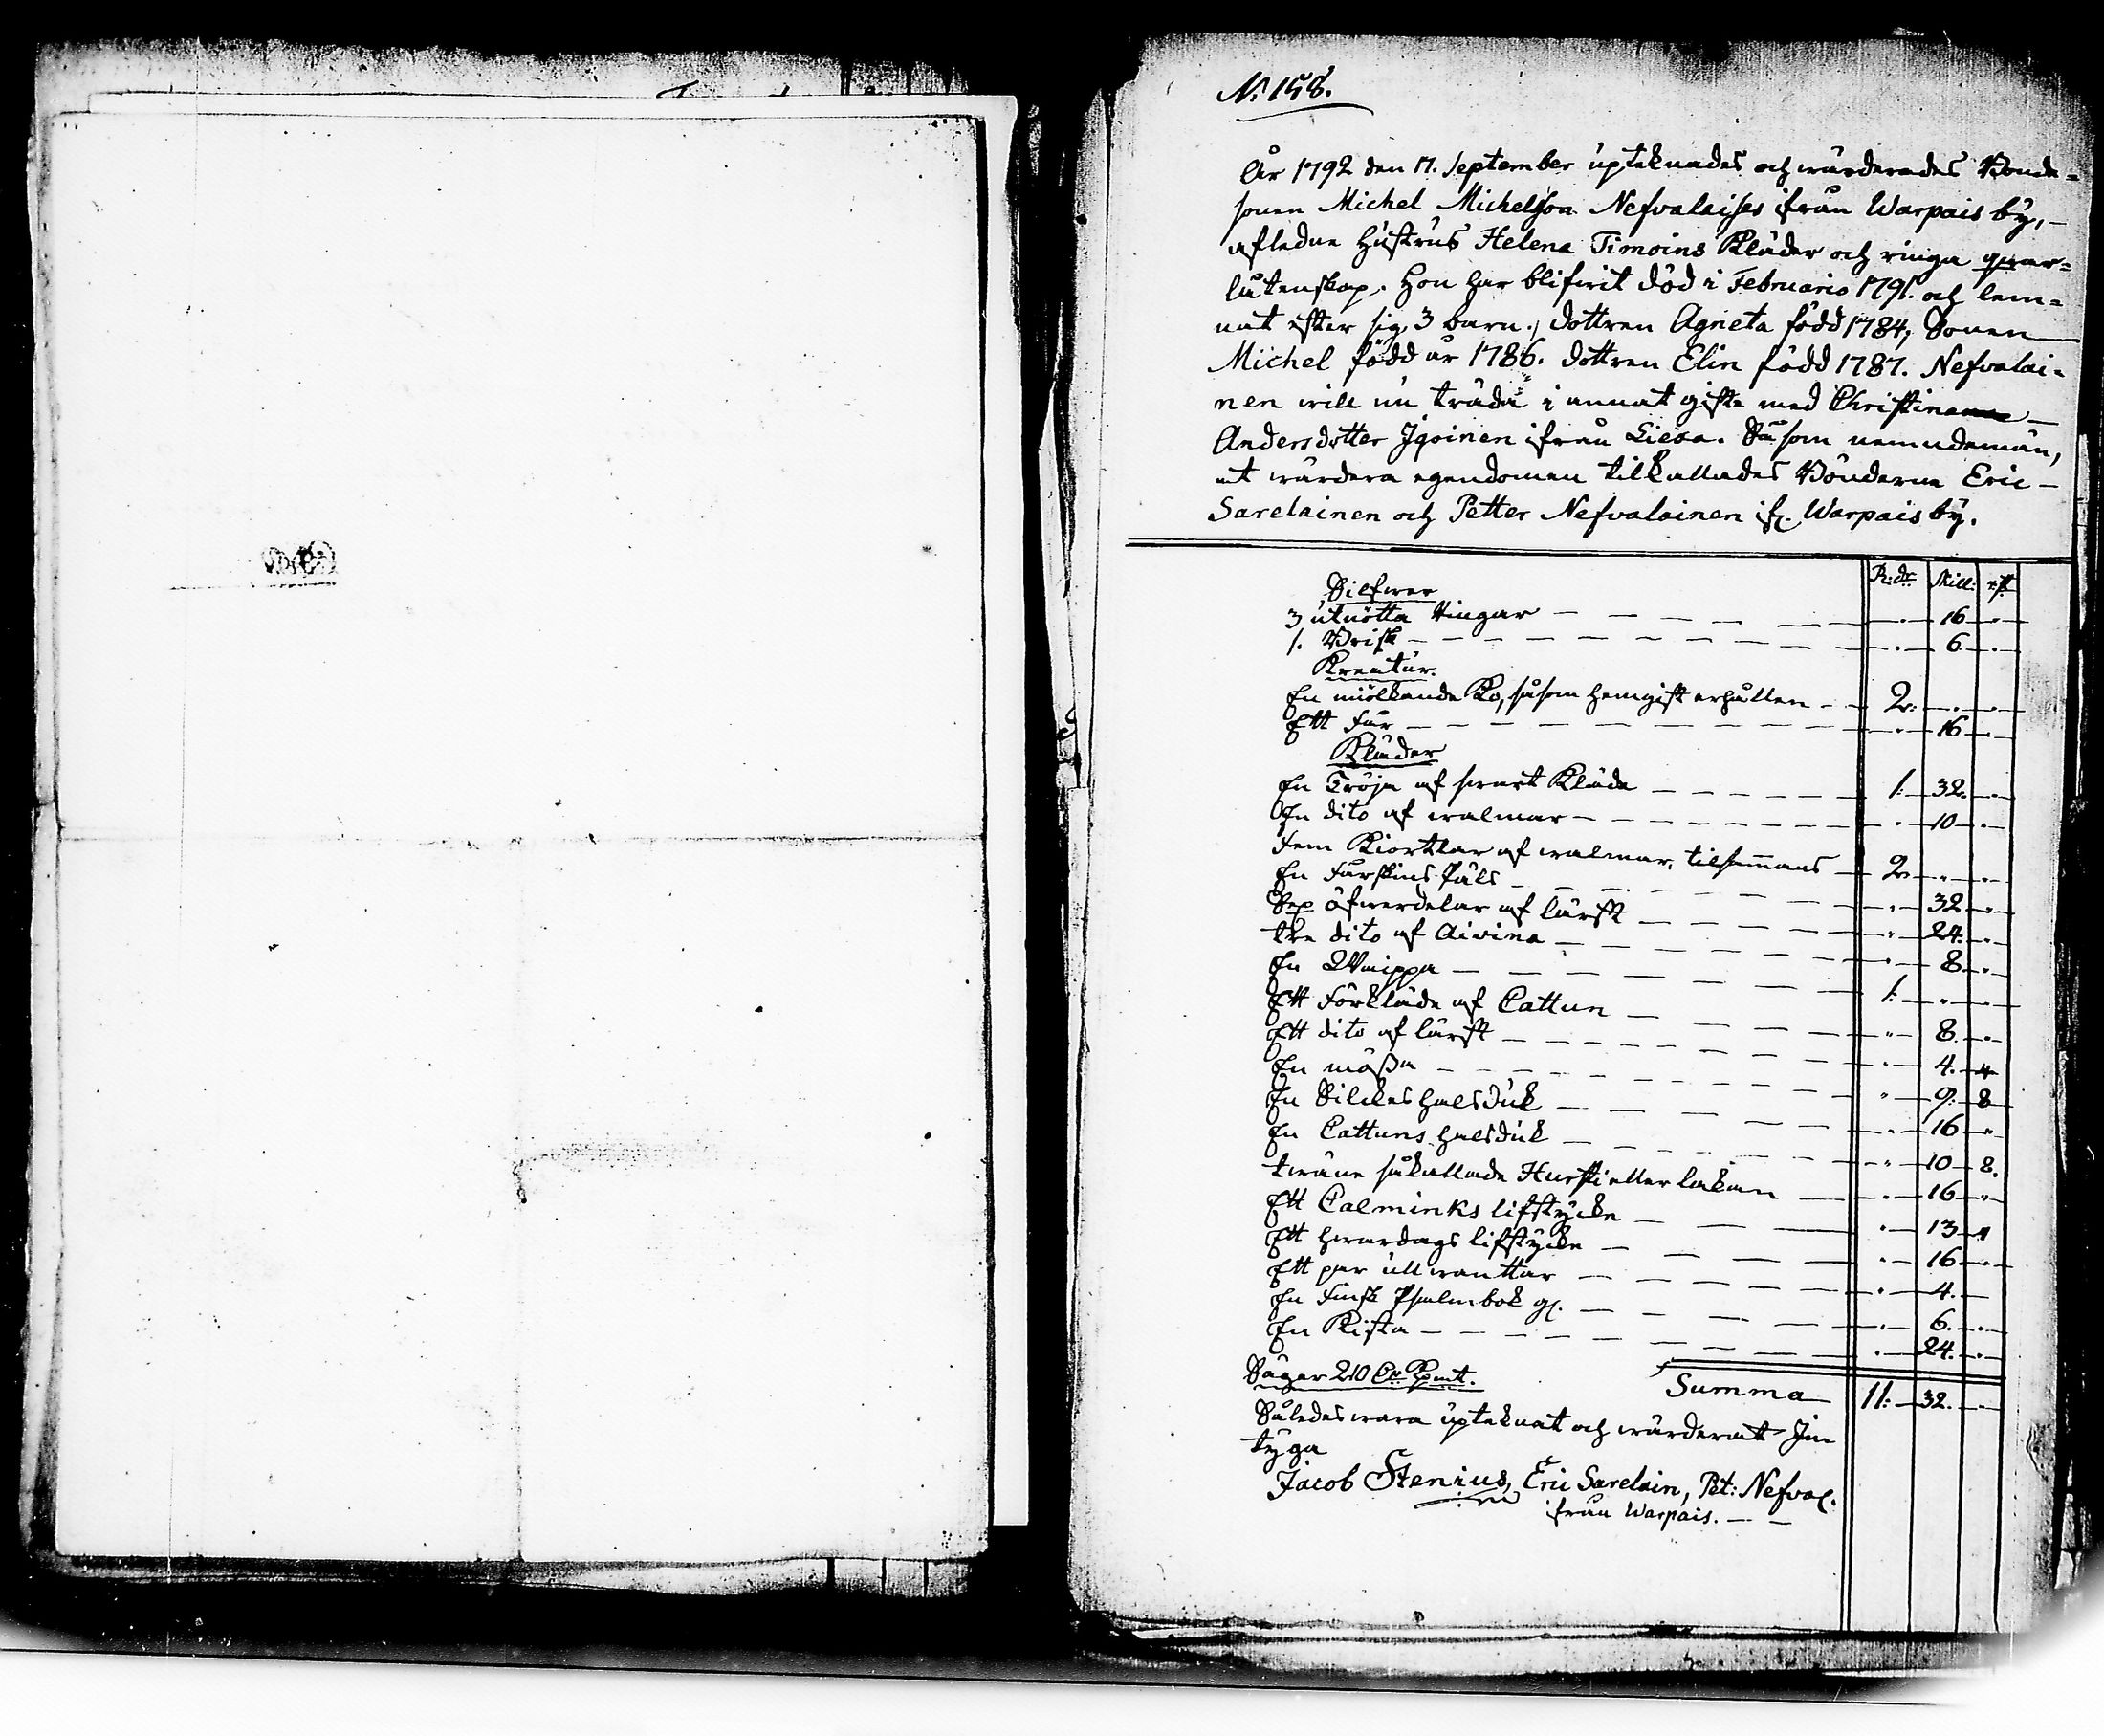 N: 158.
År 1792 den 17. September upteknades och wärderades Bonde=
sonen Michel Michelsson Nefvalaises ifrån Warpais by,
afledne hustrus Helena Timoins Kläder och ringa qvar=
låtenskap. Hon har blifwit död i Februario 1791. och lem=
nat efter sig 3 barn., dottren Agneta född 1784, Sonen
Michel född år 1786. dottren Elin född 1787. Nefvalai=
nen will nu träda i annat gifte med Christina
Andersdotter Igoinen ifrån Liexa. Såsom nemndemän,
at wärdera egendomen tilkallades Bönderne Eric
Sarelainen och Petter Nefvalainen if. Warpais by.
R:dr Skill: rst
Silfwer
3 utnötta Ringar — " 16 "
1. Brisk — " 6 "
Kreatur.
En miölkande Ko, såsom hemgift erhållen — 2: " "
Ett Får — " 16 "
Kläder
En Tröja af swart Kläde — 1: 32 "
En dito af walmar — " 10 "
Fem Kiortlar af walmar, tilsammans — 2 " "
En Fårskins Päls — " 32 "
Sex öfwerdelar af lärft — " 24 "
tre dito af Aivina — " 8 "
En Waippa — 1: " "
Ett Förkläde af Cattun — " 8 "
Ett dito af lärft — " 4. "
En mössa — " 9: 8
En Silckes halsduk — " 16 "
En Cattuns halsduk — " 10 8.
twäne såkallade Hursti eller lakan — " 16 "
Ett Calminks lifstycke — " 13 "
Ett hwardags lifstycke — " 16 "
Ett par ull wanttar — " 4. "
En Finsk Psalmbok gl. — " 6. "
En Kista — " 24. "
Säger 210 Summa 11: 32. "
Således wara upteknat och wärderat
tyga
Jacob Stenius, Eric Sarelain, Pet: Nefval.
ifrån Warpais.